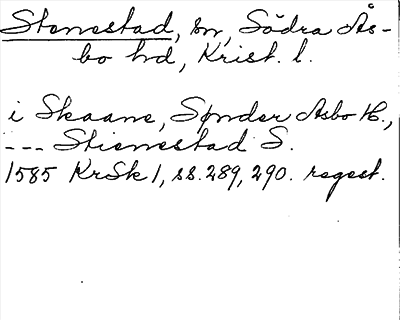 Stenestad, sn, Södra Ås-
bo hd, Krist. l.
i Skaane, Sønder Asbo H.,
--- Stienestad S.
1585 KrSk 1, ss. 289, 290. regest.